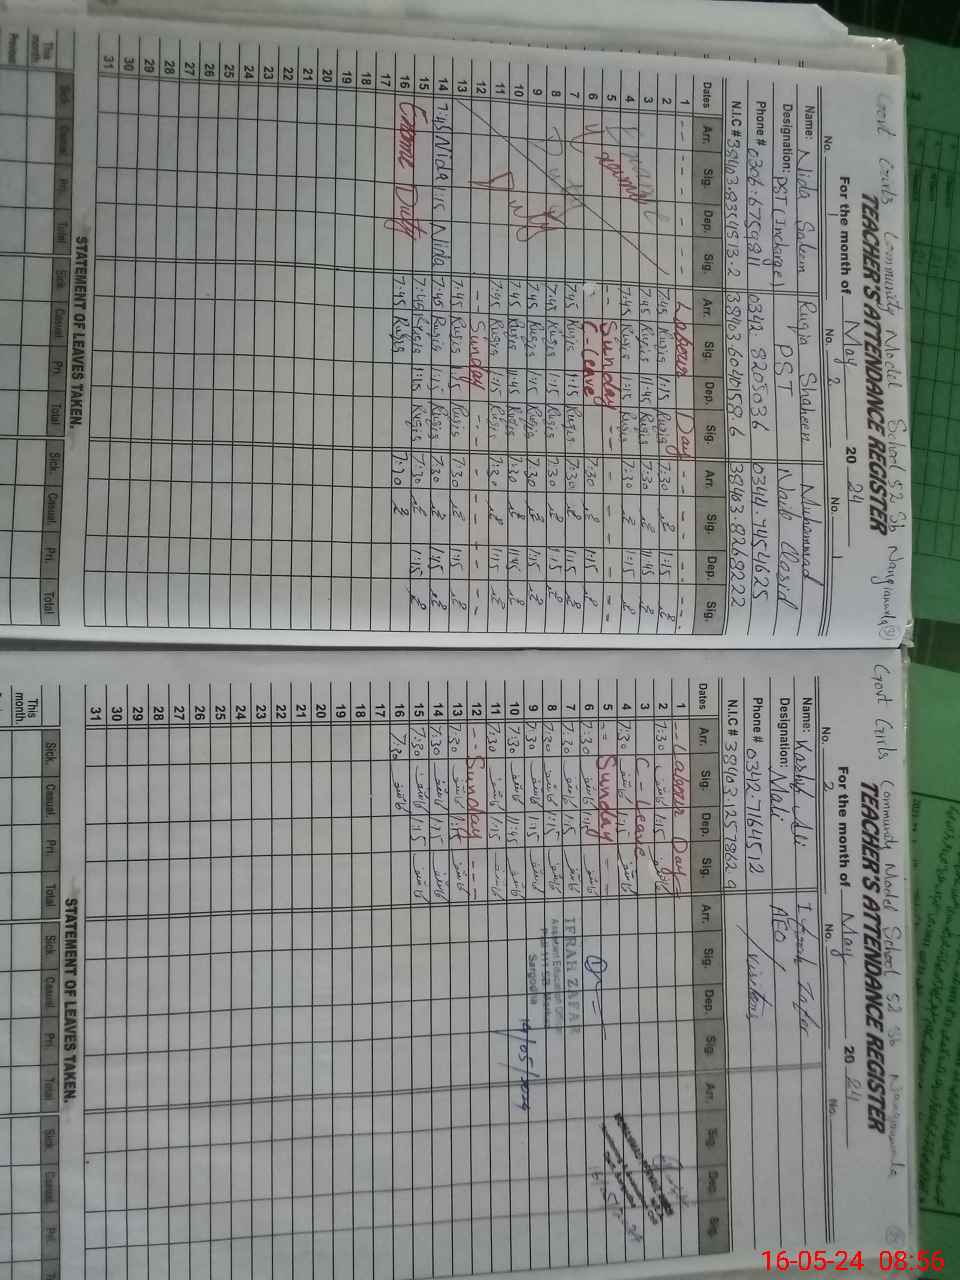 Govt Girls Community Model School 52 Sb Nangianwala
TEACHER'S ATTENDANCE REGISTER
For the month of May 2024
No. 1 No. 2 No. 1
Name: Nida Saleem Ruqia Shaheen Muhammad
Designation: PST (Incharge) PST Naib Qasid
Phone # 0306-6759811 0342 8205036 0344-7454625
N.I.C # 38403-8354513-2 38403-6040158-6 38403-8268222
Dates Arr. Sig. Dep. Sig. Arr. Sig. Dep. Sig. Arr. Sig. Dep. Sig.
1 -- -- -- -- Labour Day -- -- -- --
2 7:45 Ruqia 1:15 Ruqia 7:30 1:15
3 7:45 Ruqia 11:45 Ruqia 7:30 11:45
4 7:45 Ruqia 1:15 Ruqia 7:30 1:15
5 -- Sunday -- -- -- -- --
6 C-Leave 7:30 1:15
7 7:45 Ruqia 1:15 Ruqia 7:30 1:15
8 7:45 Ruqia 1:15 Ruqia 7:30 1:15
9 7:45 Ruqia 1:15 Ruqia 7:30 1:15
10 7:45 Ruqia 11:45 Ruqia 7:30 11:45
11 7:45 Ruqia 1:15 Ruqia 7:30 1:15
12 -- Sunday -- -- -- -- --
13 7:45 Ruqia 1:15 Ruqia 7:30 1:15
14 7:45 Nida 1:15 Nida 7:45 Ruqia 1:15 Ruqia 7:30 1:15
15 7:45 Ruqia 1:15 Ruqia 7:30 1:15
16 Duty 7:45 Ruqia 7:30
17
18
19
20
21
22
23
24
25
26
27
28
29
30
31
STATEMENT OF LEAVES TAKEN.
Sick. Casual. Pri. Total Sick. Casual. Pri. Total Sick. Casual. Pri. Total
This month.
Previous
Govt Girls Community Model School 52 Sb Nangianwala
TEACHER'S ATTENDANCE REGISTER
For the month of May 2024
No. 2 No. No.
Name: Kashif Ali Ifrah Zafar
Designation: Mali AEO / visitors
Phone # 0342-7164512
N.I.C # 38403-1257862-9
Dates Arr. Sig. Dep. Sig. Arr. Sig. Dep. Sig. Arr. Sig. Dep. Sig.
1 -- Labour Day --
2 7:30 کاشف 1:15 کاشف
3 C-Leave
4 7:30 کاشف 1:15 کاشف
5 -- Sunday --
6 7:30 کاشف 1:15 کاشف
7 7:30 کاشف 1:15 کاشف
8 7:30 کاشف 1:15 کاشف
9 7:30 کاشف 1:15 کاشف
10 7:30 کاشف 11:45 کاشف
11 7:30 کاشف 1:15 کاشف
12 -- Sunday --
13 7:30 کاشف 1:15 کاشف
14 7:30 کاشف 1:15 کاشف
15 7:30 کاشف 1:15 کاشف
16 7:30 کاشف
17
18
19
20
21
22
23
24
25
26
27
28
29
30
31
IFRAH ZAFAR
Assistant Education Officer
Sargodha
14/05/2024
STATEMENT OF LEAVES TAKEN.
Sick. Casual. Pri. Total Sick. Casual. Pri. Total Sick. Casual. Pri.
This month.
16-05-24 08:56